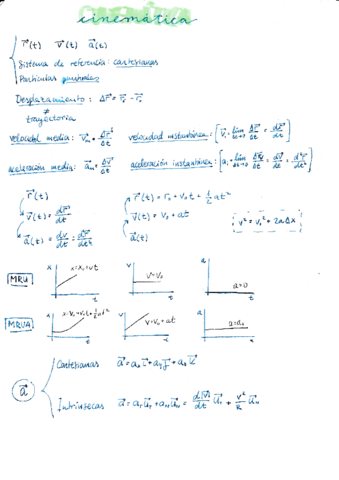 cinemática
r⃗(t) v⃗(t) a⃗(t)
Sistema de referencia: cartesianas
Partículas puntuales
Desplazamiento: Δr⃗ = r⃗ - r⃗₀
≠
trayectoria
velocidad media: v⃗m = Δr⃗/Δt velocidad instantánea: [v⃗i = lim Δt→0 Δr⃗/Δt = dr⃗/dt]
aceleración media: a⃗m = Δv⃗/Δt aceleración instantánea: [a⃗i = lim Δt→0 Δv⃗/Δt = dv⃗/dt = d²r⃗/dt²]
r⃗(t) r⃗(t) = r₀ + v₀t + ½at²
v⃗(t) = dr⃗/dt v⃗(t) = v₀ + at v² = v₀² + 2aΔx
a⃗(t) = dv⃗/dt = d²r⃗/dt² a⃗(t)
MRU x x = x₀ + vt t v v = v₀ t a a = 0 t
MRUA x x = x₀ + v₀t + ½at² t v v = v₀ + at t a a = a₀ t
Cartesianas a⃗ = aₓi⃗ + aᵧj⃗ + a_z k⃗
a⃗
Intrínsecas a⃗ = a_T u⃗_T + a_N u⃗_N = d|v⃗|/dt u⃗_T + v²/R u⃗_N